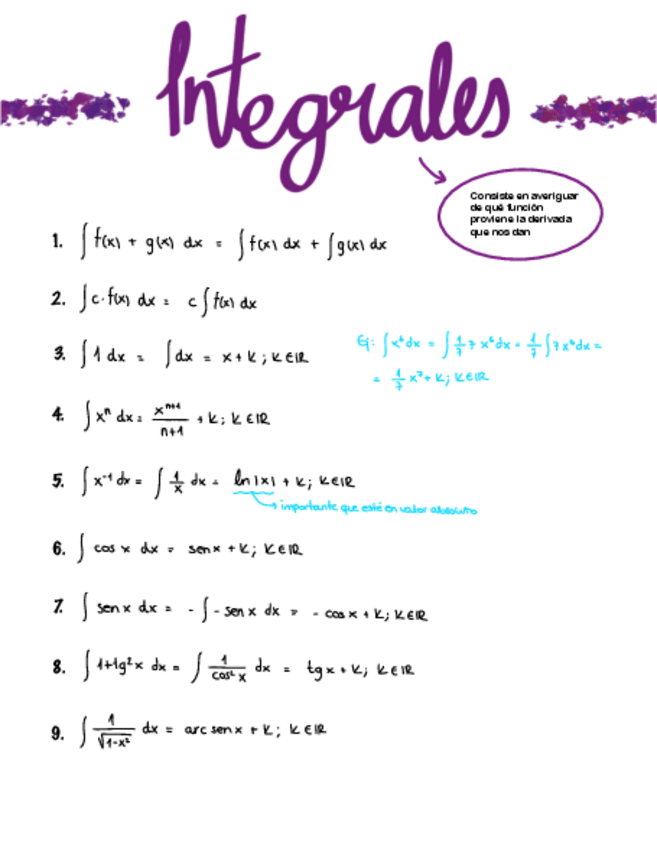 Integrales
Consiste en averiguar
de qué función
proviene la derivada
que nos dan
1. ∫ f(x) + g(x) dx = ∫ f(x) dx + ∫ g(x) dx
2. ∫ c·f(x) dx = c ∫ f(x) dx
3. ∫ 1 dx = ∫ dx = x + K ; K ∈ IR
Ej: ∫ x⁶ dx = ∫ 1/7 7 x⁶ dx = 1/7 ∫ 7x⁶ dx =
= 1/7 x⁷ + K; K ∈ IR
4. ∫ xⁿ dx = xⁿ⁺¹/n+1 + K; K ∈ IR
5. ∫ x⁻¹ dx = ∫ 1/x dx = ln |x| + K; K ∈ IR
importante que esté en valor absoluto
6. ∫ cos x dx = sen x + K; K ∈ IR
7. ∫ sen x dx = - ∫ - sen x dx = - cos x + K; K ∈ IR
8. ∫ 1+tg² x dx = ∫ 1/cos² x dx = tg x + K; K ∈ IR
9. ∫ 1/√1-x² dx = arc sen x + K; K ∈ IR